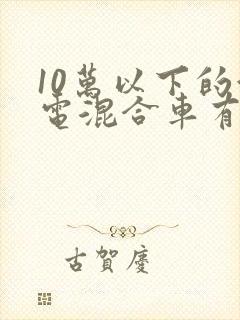 10萬以下的
電混合車有
古賀慶